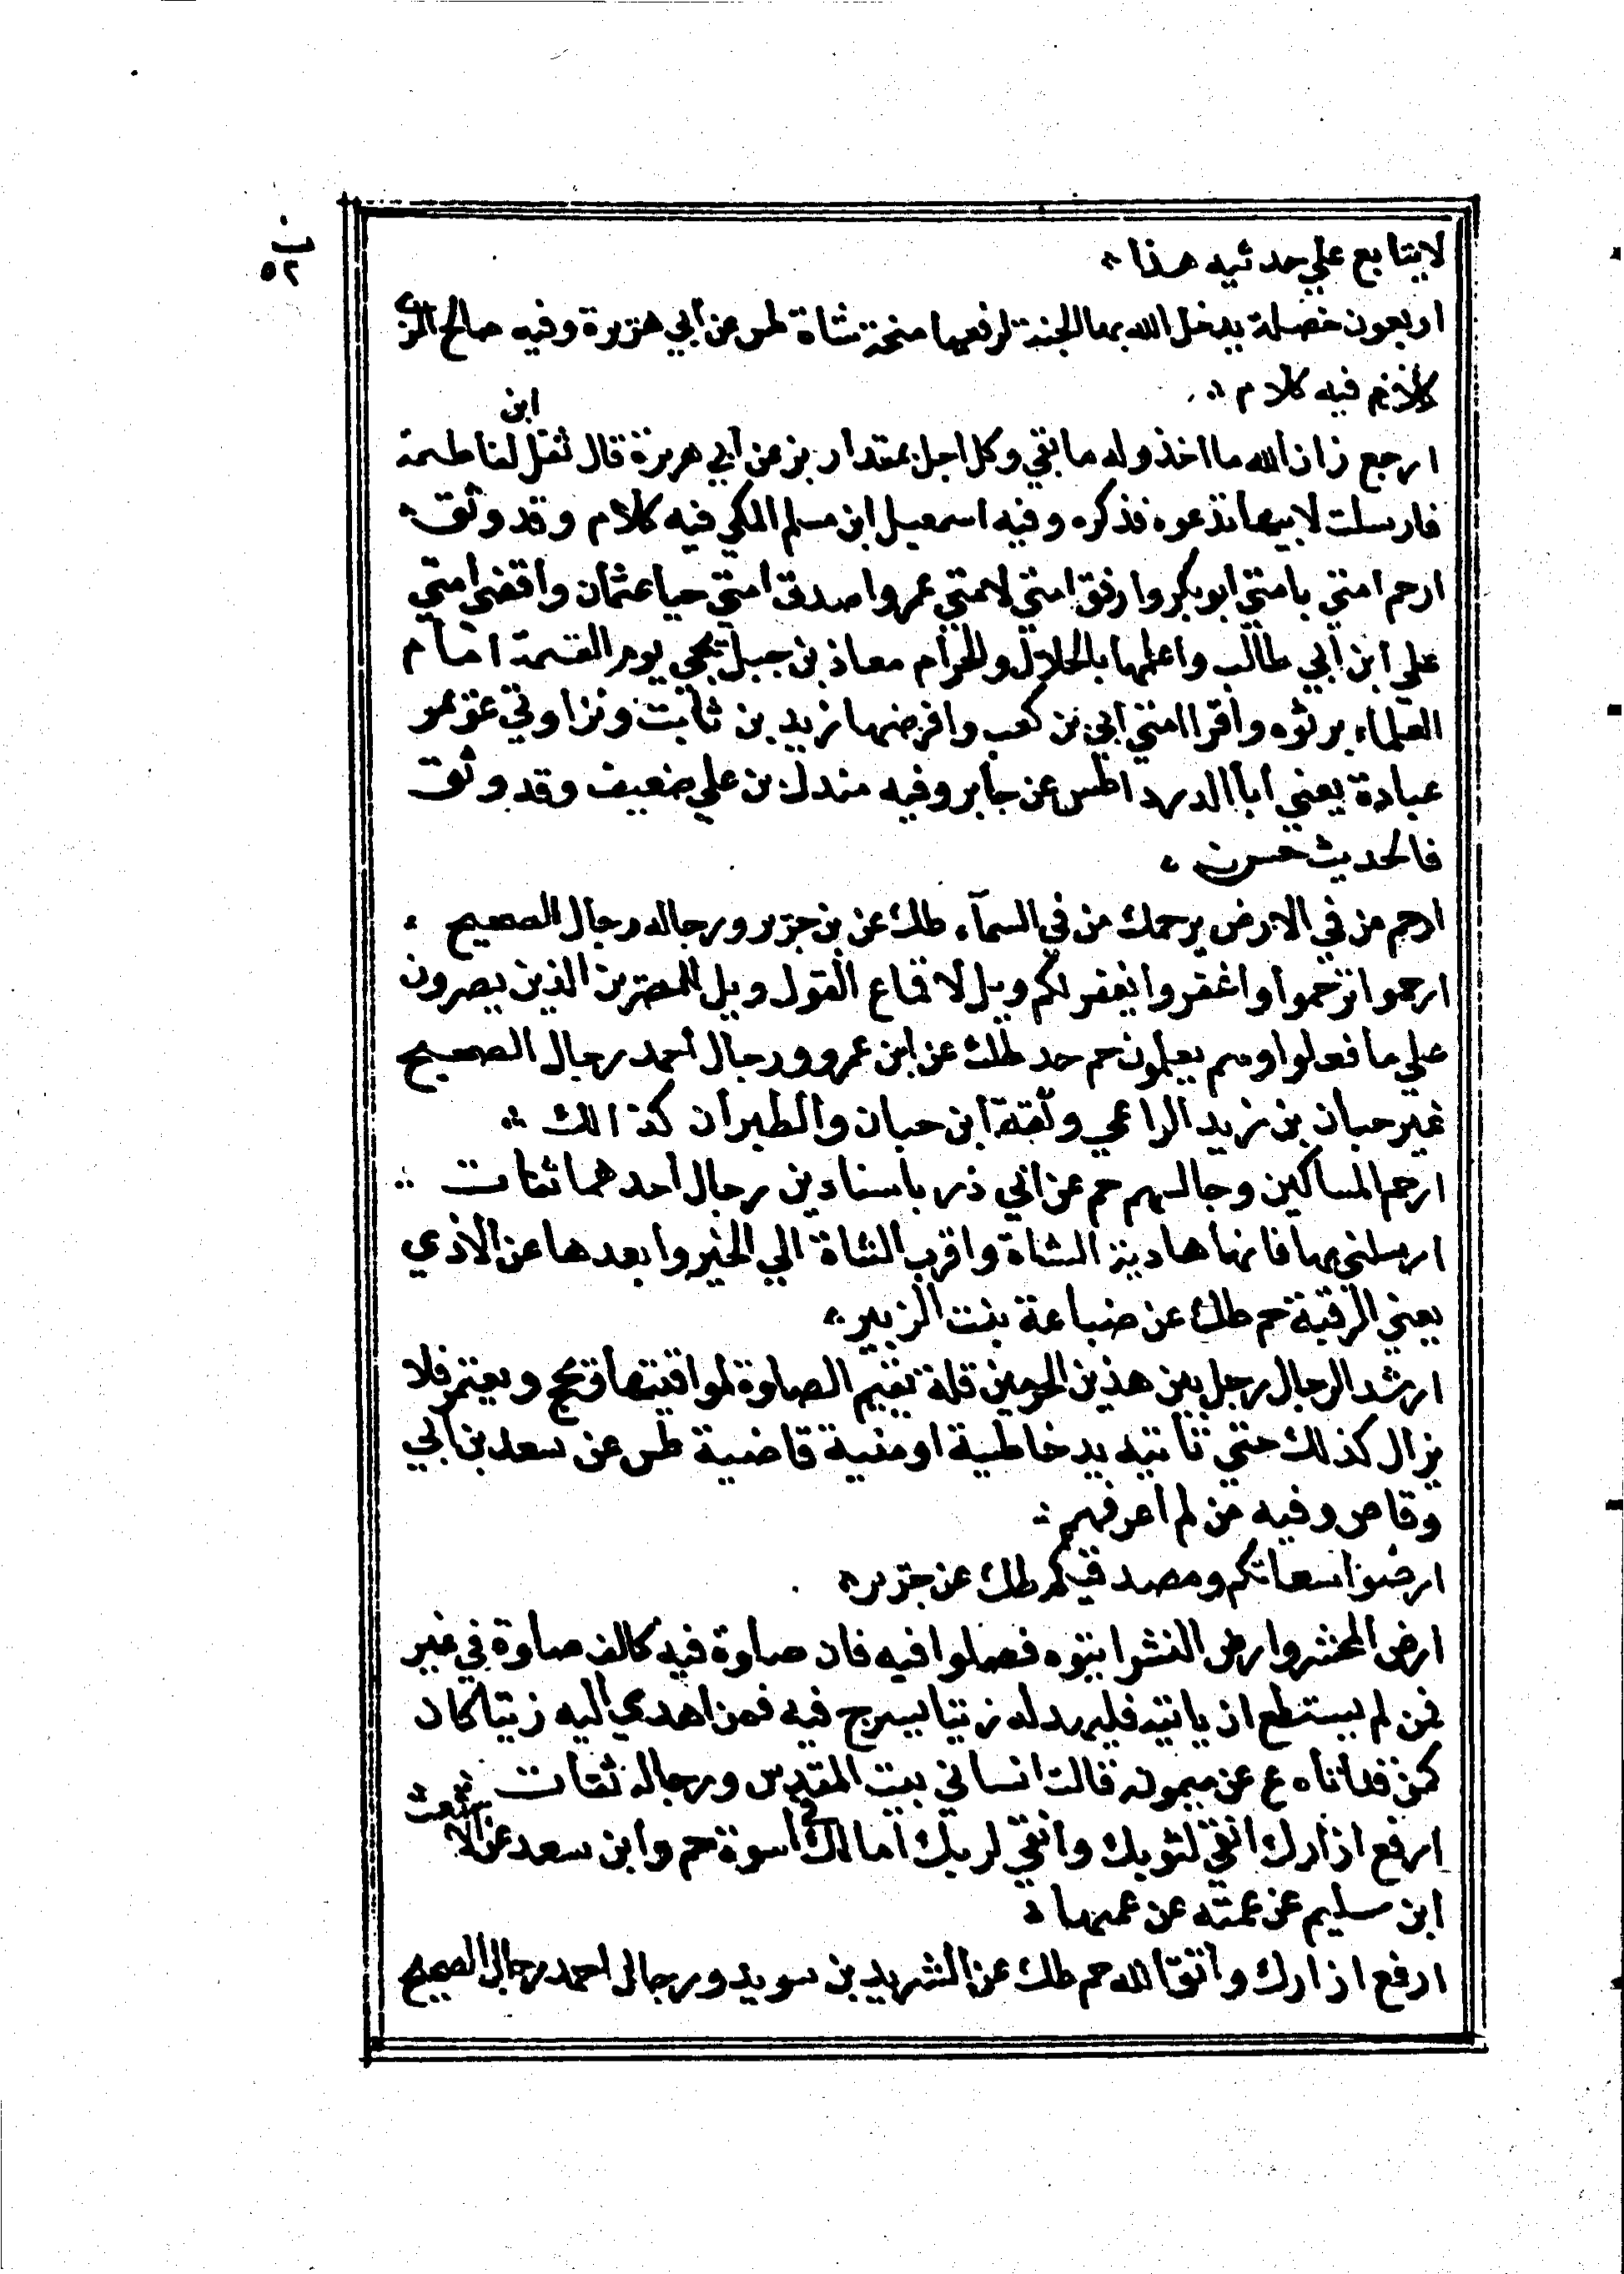 ٥٢
لا يتابع علي حدثيه هذا
اربعون خصلة يدخل الله بها الجنة ارفعها منحة شاة طس عن أبي هزيرة وفيه صالح المري
كلازم فيه كلام
ابن
ارجع زان الله ما اخذ وله ما بقي وكل اجل بمقدار بز عن أبي هريرة قال ثقل لفاطمة
فارسلت لابيها تدعوه فذكره وفيه اسمعيل ابن مسلم المكي فيه كلام وقد وثق
ارحم امتي بامتي ابو بكر وارفق امتي لامتي عمر واصدق امتي حيا عثمان واقضى امتي
علي ابن ابي طالب واعلمها بالحلال والحرام معاذ بن جبل يجي يوم القيمة امام
العلماء برتوه واقرا امتي ابي بن كعب وافرضها زيد بن ثابت وزاوتي عويمر
عبادة يعني ابا الدردا طس عن جابر وفيه مندل بن علي ضعيف وقد وثق
فالحديث حسن
ارحم من في الارض يرحمك من في السمآء طك عن بن جرير ورجاله رجال الصحيح
ارحموا ترحموا واغفروا يغفر لكم ويل لاقماع القول ويل للمصرين الذين يصرون
علي ما فعلوا وهم يعلمون حم حد طك عن ابن عمرو ورجال أحمد رجال الصحيح
غير حبان بن زيد الراعي وثقة ابن حبان والطبران كذالك
ارحم المساكين وجالسهم حم عن ابي ذر باسنادين رجال أحدهما ثقات
ارسلني بها فانها هادية الشاة واقرب الشاة الي الخير وابعدها عن الأذي
يعني الرقبة حم طك عن ضباعة بنت الزبير
ارشد الرجال رجل بين هذين الحرمين قلة تقيم الصلوة لمواقيتها وتحج وتعتمر فلا
يزال كذلك حتي تأتيه يد خاطية او منية قاضية طس عن سعد بن ابي
وقاص وفيه من لم اعرفهم
ارضوا سعاتكم ومصدقيكم طك عن جرير
ارض المحشر وارض النشر ايتوه فصلوا فيه فان صلوة فيه كالف صلوة في غير
فمن لم يستطع ان ياتيه فليهد له زيتا يسرج فيه فمن اهدي اليه زيتا كان
كمن قد اتاه ع عن ميمونه قالت انسا في بيت المقدس ورجاله ثقات
ارفع ازارك انقي لثوبك واتقي لربك اما لك في اسوة حم وابن سعد عن الاشعث
ابن سليم عن عمته عن عمها
ارفع ازارك واتق الله حم طك عن الشريد بن سويد ورجال احمد رجال الصحيح